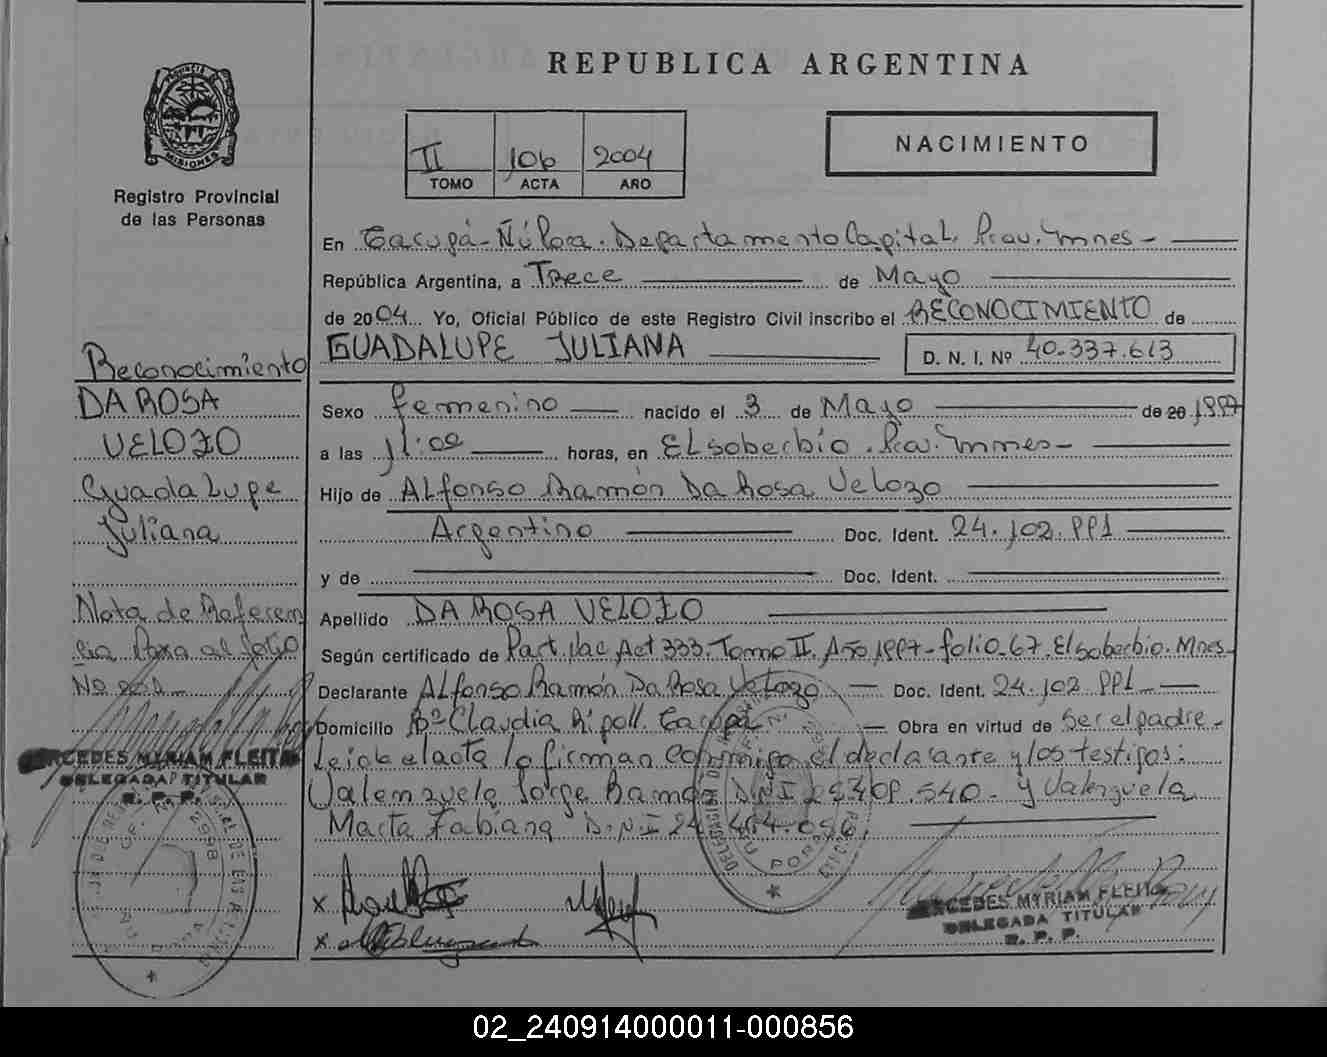 REPUBLICA ARGENTINA
PROVINCIA DE MISIONES
Registro Provincial
de las Personas
II 106 2004
TOMO ACTA AÑO
NACIMIENTO
En Garupá - Ñú Pora. Departamento Capital. Prov. Mnes -
República Argentina, a Trece de Mayo
de 2004 Yo, Oficial Público de este Registro Civil inscribo el RECONOCIMIENTO de
GUADALUPE JULIANA D. N. I. Nº 40.337.613
Sexo femenino nacido el 3 de Mayo de 20 1997
a las 11:00 horas, en El Soberbio. Prov. Mnes -
Hijo de Alfonso Ramón Da Rosa Velozo
Argentino Doc. Ident. 24.102.991
y de Doc. Ident.
Apellido DA ROSA VELOZO
Según certificado de Part. Nac. Act 333. Tomo II. Año 1997 - folio 67. El Soberbio. Mnes -
Declarante Alfonso Ramón Da Rosa Velozo Doc. Ident. 24.102.991
Domicilio Bº Claudia Ripoll. Garupá Obra en virtud de ser el padre -
Leida el acta la firman conmigo el declarante y los testigos:
Valenzuela Jorge Ramón D.N.I 25.409.540 - y Valenzuela
Marta Fabiana D.N.I 24.464.056.
MERCEDES MYRIAM FLEITA
DELEGADA TITULAR
R. P. P.
Reconocimiento
DA ROSA
VELOZO
Guadalupe
Juliana
Nota de Referen
cia Pasa al folio
No
MERCEDES MYRIAM FLEITA
DELEGADA TITULAR
R. P. P.
02_240914000011-000856